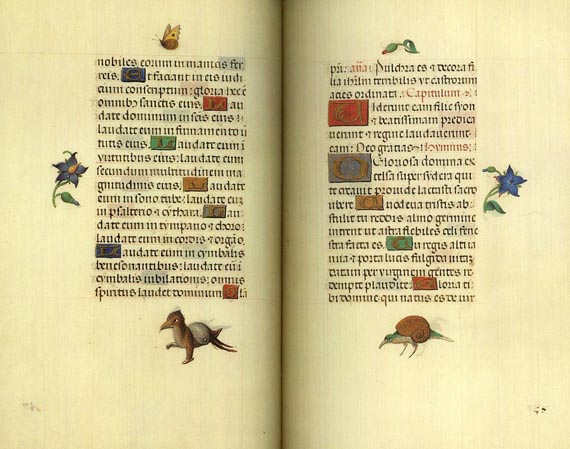 nobiles eorum in manicis fer
reis. Et faciant in eis iudi
cium conscriptum: gloria hec e
omnibus sanctis eius. Lau
date dominum in sctis eius:
laudate eum in firmamento vir
tutis eius. Laudate eum in
virtutibus eius: laudate eum
secundum multitudinem ma
gnitudinis eius. Laudate
eum in sono tube: laudate eum
in psalterio et cythara. Lau
date eum in tympano et choro:
laudate eum in cordis et orgão.
Laudate eum in cymbalis
benesonantibus: laudate eũ i
cymbalis iubilationis: omnis
spiritus laudet dominum
pri: aña: Pulchra es et decora fi
lia ihrlm terribilis vt castrorum
acies ordinata. Capitulum.
Viderunt eam filie syon
et beatissimam predica
uerunt et regine laudauerunt
eam: Deo gratias. Hymnus.
O Gloriosa domina ex
celsa super sydera qui
te creauit prouide lactasti sacro
ubere. Quod eua tristis ab
stulit tu reddis almo germine
intrent vt astra flebiles celi fene
stra facta es. Tu regis alti ia
nua et porta lucis fulgida vitã
datam per virginem gentes re
dempte plaudite. Gloria ti
bi domine qui natus es de vir